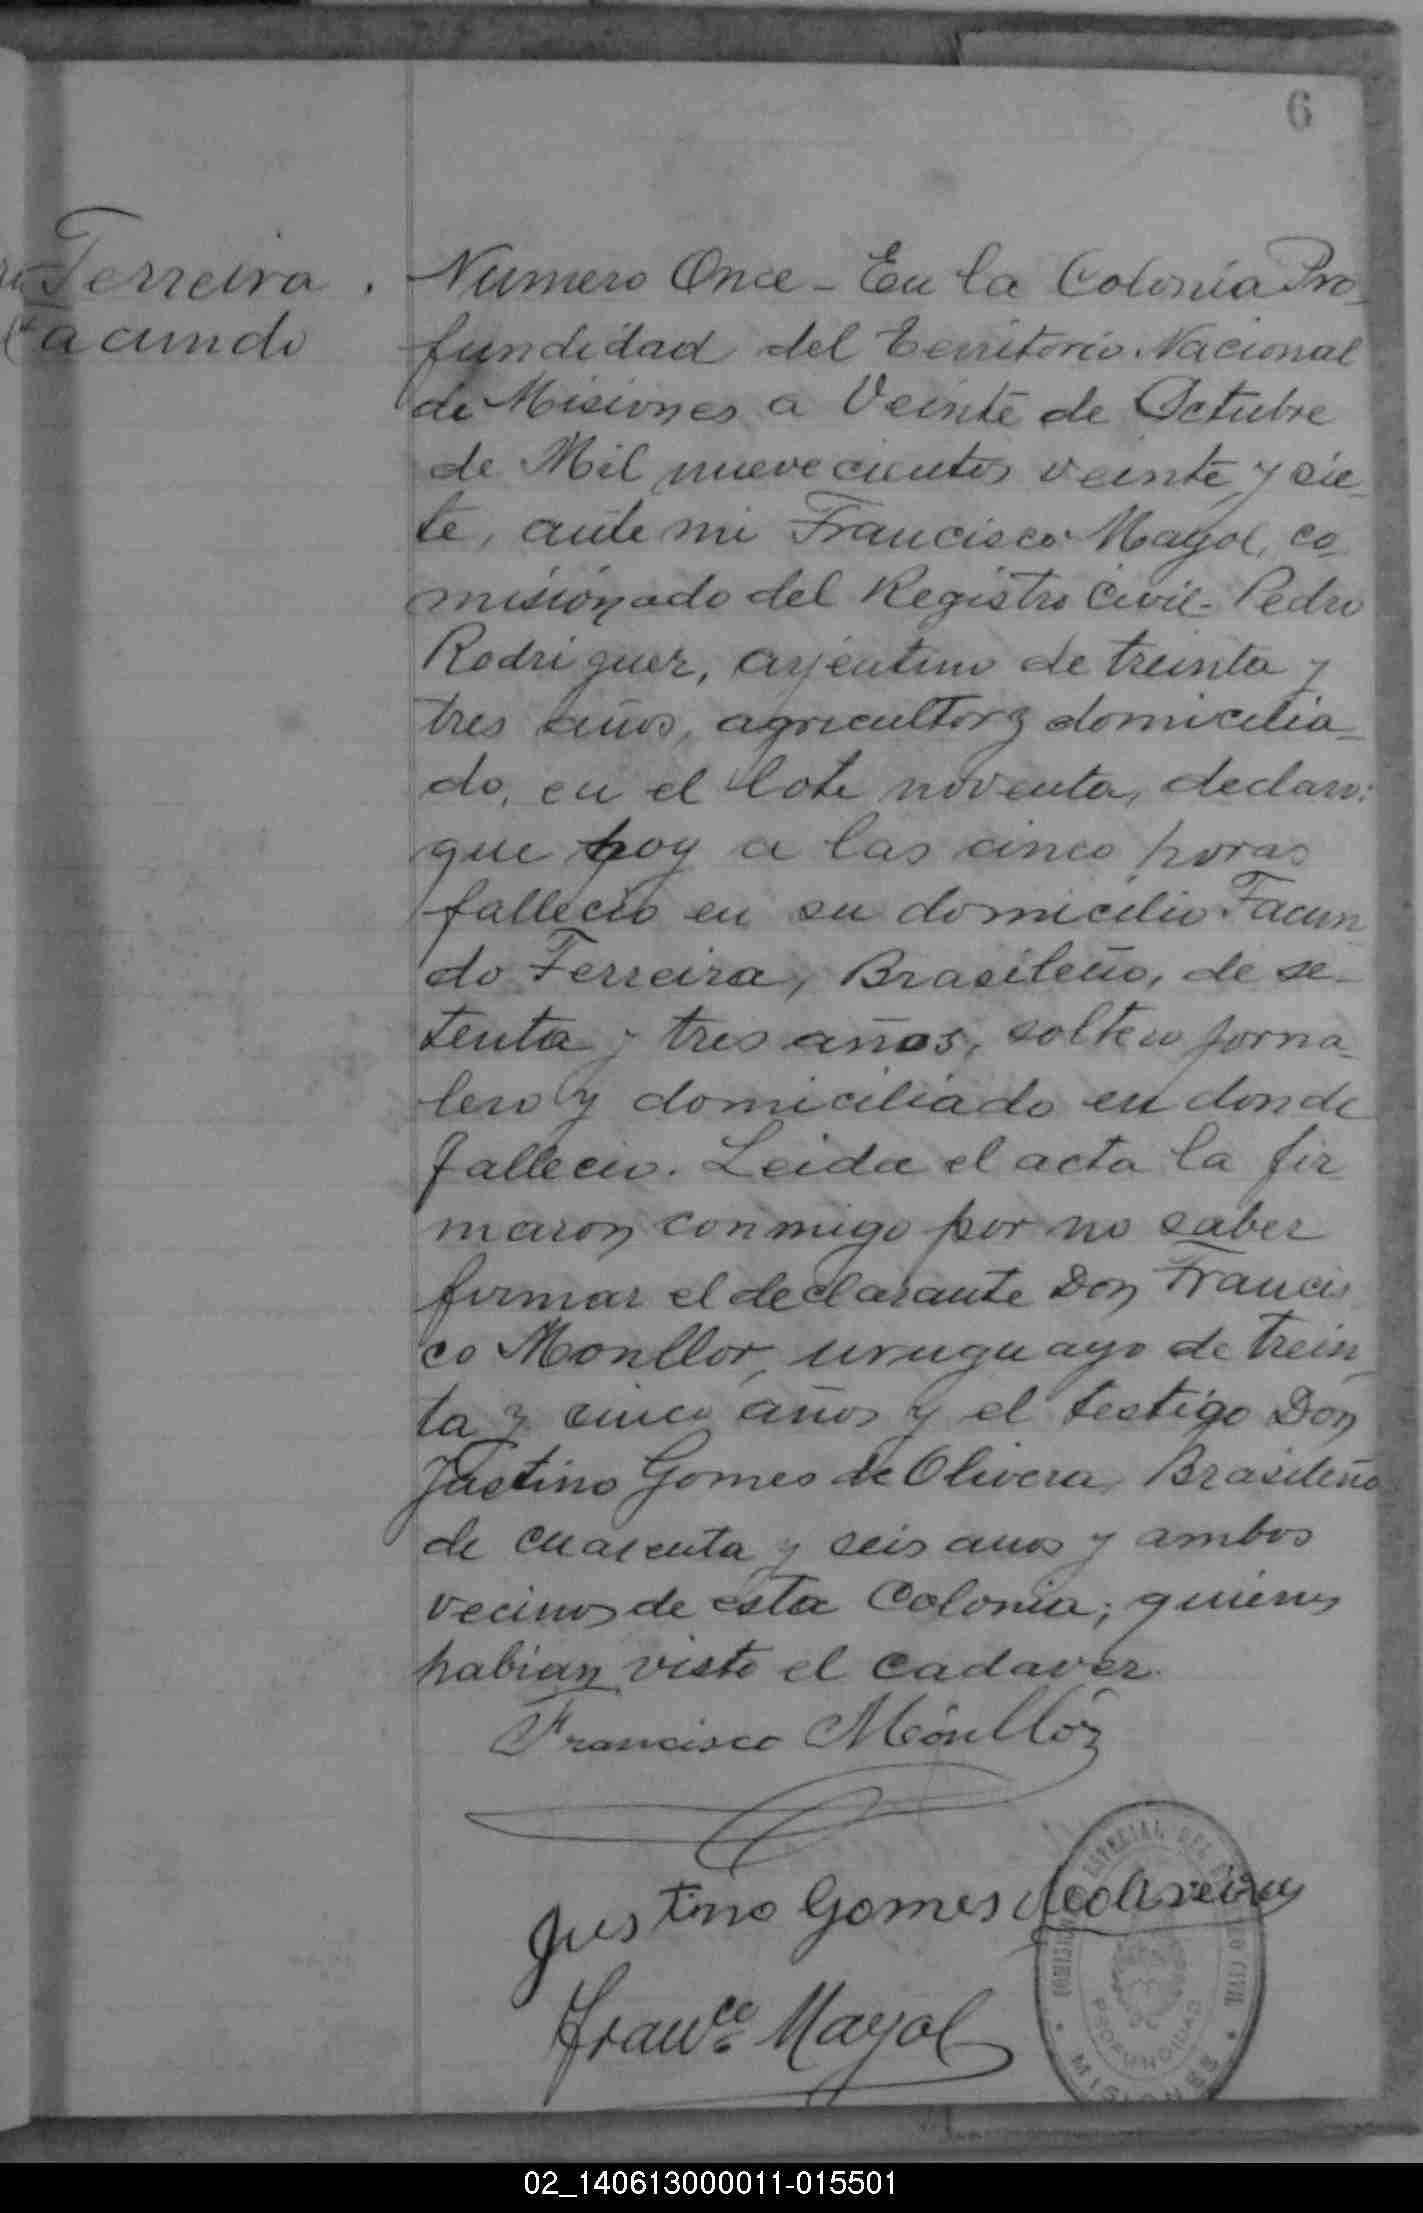 6
Ferreira.
Facundo
Numero Once - En la Colonia Pro-
fundidad del Territorio Nacional
de Misiones a Veinte de Octubre
de Mil nuevecientos veinte y sie-
te, ante mi Francisco Mayol, co-
misionado del Registro Civil - Pedro
Rodriguez, arjentino de treinta y
tres años, agricultor y domicilia-
do, en el lote noventa, declaro:
que hoy a las cinco horas
fallecio en su domicilio Facun
do Ferreira, Brasileño, de se-
tenta y tres años, soltero jorna-
lero y domiciliado en donde
fallecio. Leida el acta la fir
maron conmigo por no saber
firmar el declarante Don Francis
co Monllor, uruguayo de trein-
ta y cinco años y el testigo Don
Justino Gomes de Olivera, Brasileño
de cuarenta y seis anos y ambos
vecinos de esta Colonia; quienes
habian visto el cadaver.
Francisco Monllor
Justino Gomes de Oliveira
Franco Mayol
COMISION ESPECIAL DEL REGISTRO CIVIL
PROFUNDIDAD
MISIONES
02_140613000011-015501